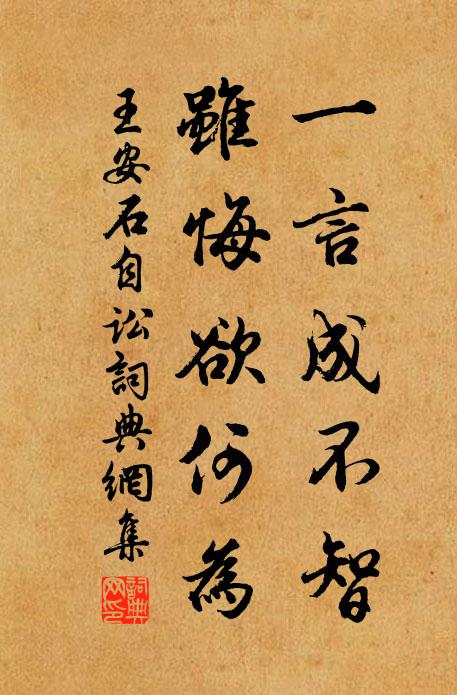 一言成不智
雖悔欲何為
王安石自訟詞典網集
詞典
网印